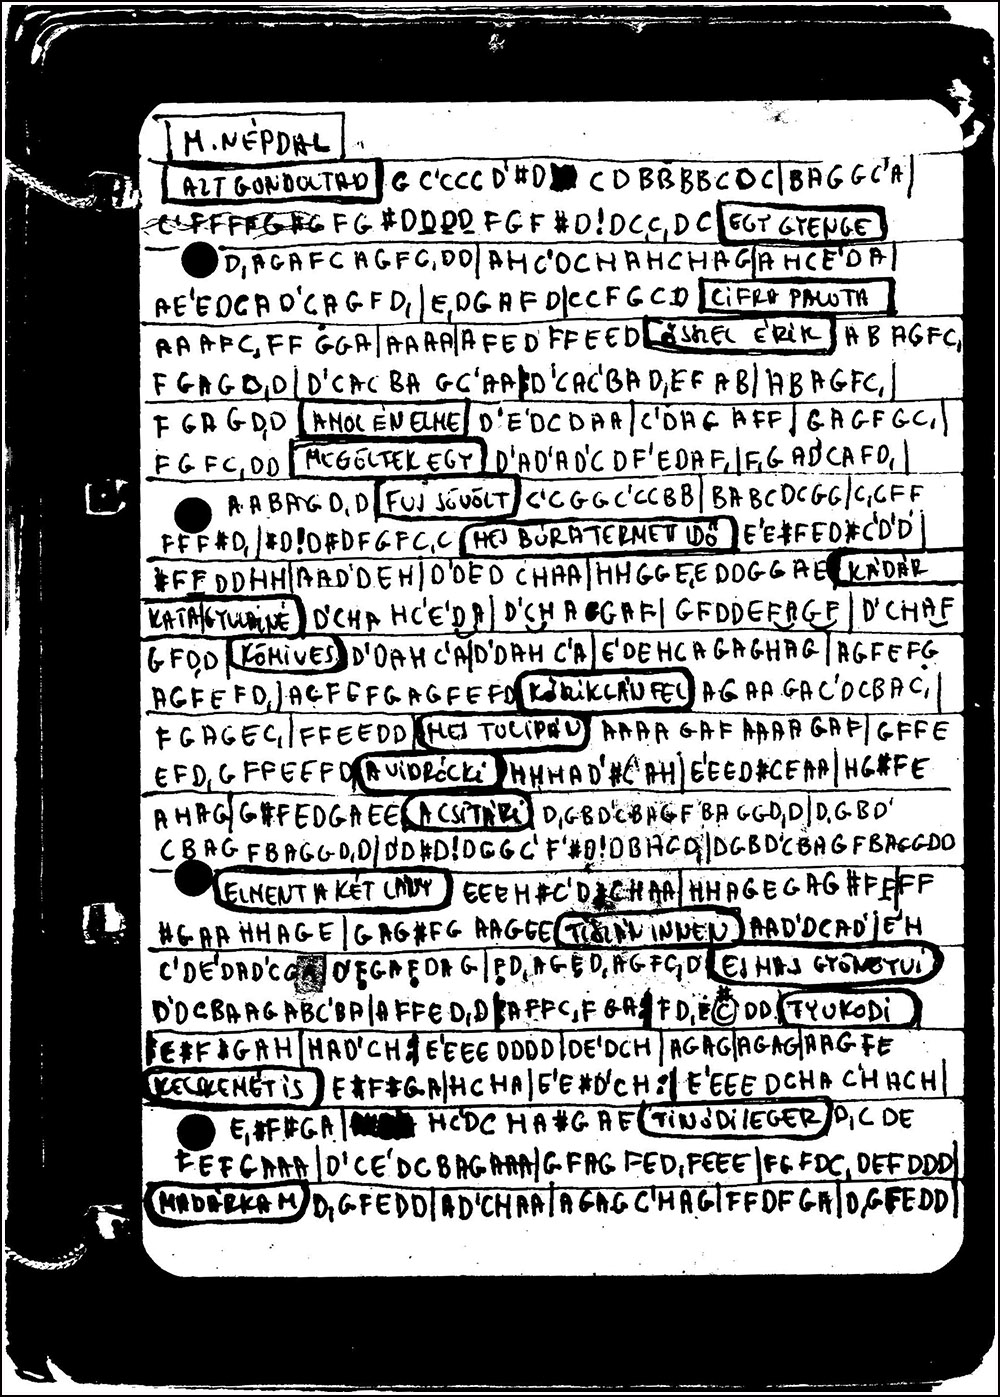 M. NÉPDAL
AZT GONDOLTAD G C'CCC D'#D C D B B B B C D C | B A G G C'A |
F G #D D D D F G F #D! D C C, D C EGY GYENGE
D, A G A F C A G F C, D D | A H C'D C H A H C H A G | A H C E'D A |
A E'E D C A D'C A G F D, | E, D G A F D | C C F G C D CIFRA PALOTA
A A A F C, F F G G A | A A A A | A F E D F F E E D ŐSZZEL ÉRIK A B A G F C,
F G A G D, D | D'C A C B A G C'A A | D'C A C'B A D, E F A B | A B A G F C, |
F G A G D, D AHOL ÉN ELME D'E'D C D A A | C'D A G A F F | G A G F G C, |
F G F C, D D MEGÖLTEK EGY D'A D'A D'C D F'E D A F, | F, G A D'C A F D, |
A A B A G D, D FUJ SÚVÖLT C'C G G C'C C B B | B A B C D C G G | C, C F F
F F F #D, | #D! D #D F G F C, C HEJ BÚRA TERMETT IDŐ E'E #F E D #C'D'D |
#F F D D H H | A A D'D E H | D'D E D C H A A | H H G G E, E D D G G A E KÁDÁR
KATA | GYULAINÉ D'C H A H C'E'D A | D'C H A G G A F | G F D D E F A G F | D'C H A F
G F D, D KŐMIVES D'D A H C'A | D'D A H C'A | E'D E H C A G A G H A G | A G F E F G
A G F E F D, | A G F E F G A G F E F D KÖRIKLÁNFEL A G A A G A C'D C B A C, |
F G A G E C, | F F E E D D HEJ TULIPÁN A A A A G A F A A A A G A F | G F F E
E F D, G F F E E F D A VIDRÓCKI H H H A D'#C'A H | E'E E D #C E A A | H G #F E
A H A G | G #F E D G A E E A CSITÁRI D, G B D'C B A G F B A G G D, D | D, G B D'
C B A G F B A G G D, D | D'D #D! D G G C'F'#D! D B H C D, | D G B D'C B A G F B A G G D D
ELMENT A KÉT LÁNY E E E H #C'D #C H A A | H H A G E G A G #F E F F
#G A A H H A G E | G A G #F G A A G E E TISZÁN INNEN A A D'D C A D' | E'H
C'D E'D A D'C G A D'F G A F D A G | F D, A G E D, A G F C, D' EJ HAJ GYÖNGYVI
D'D C B A A G A B C'B A | A F F E D, D | A F F C, F G A | F D, E #C D D TYUKODI
E #F #G A H | H A D'C H :| E'E E E D D D D | D E'D C H | A G A G | A G A G | A A G F E
KECSKEMÉT IS E #F #G A | H C H A | E'E #D'C H :| E'E E E D C H A C'H A C H |
E, #F #G A | H C'D C H A #G A E TINÓDI | EGER D, C D E
F E F G A A A | D'C E'D C B A G A A A | G F A G F E D, F E E E | F G F D C, D E F D D D |
MADÁRKA M D, G F E D D | A D'C H A A | A G A G C'H A G | F F D F G A | D, G F E D D |